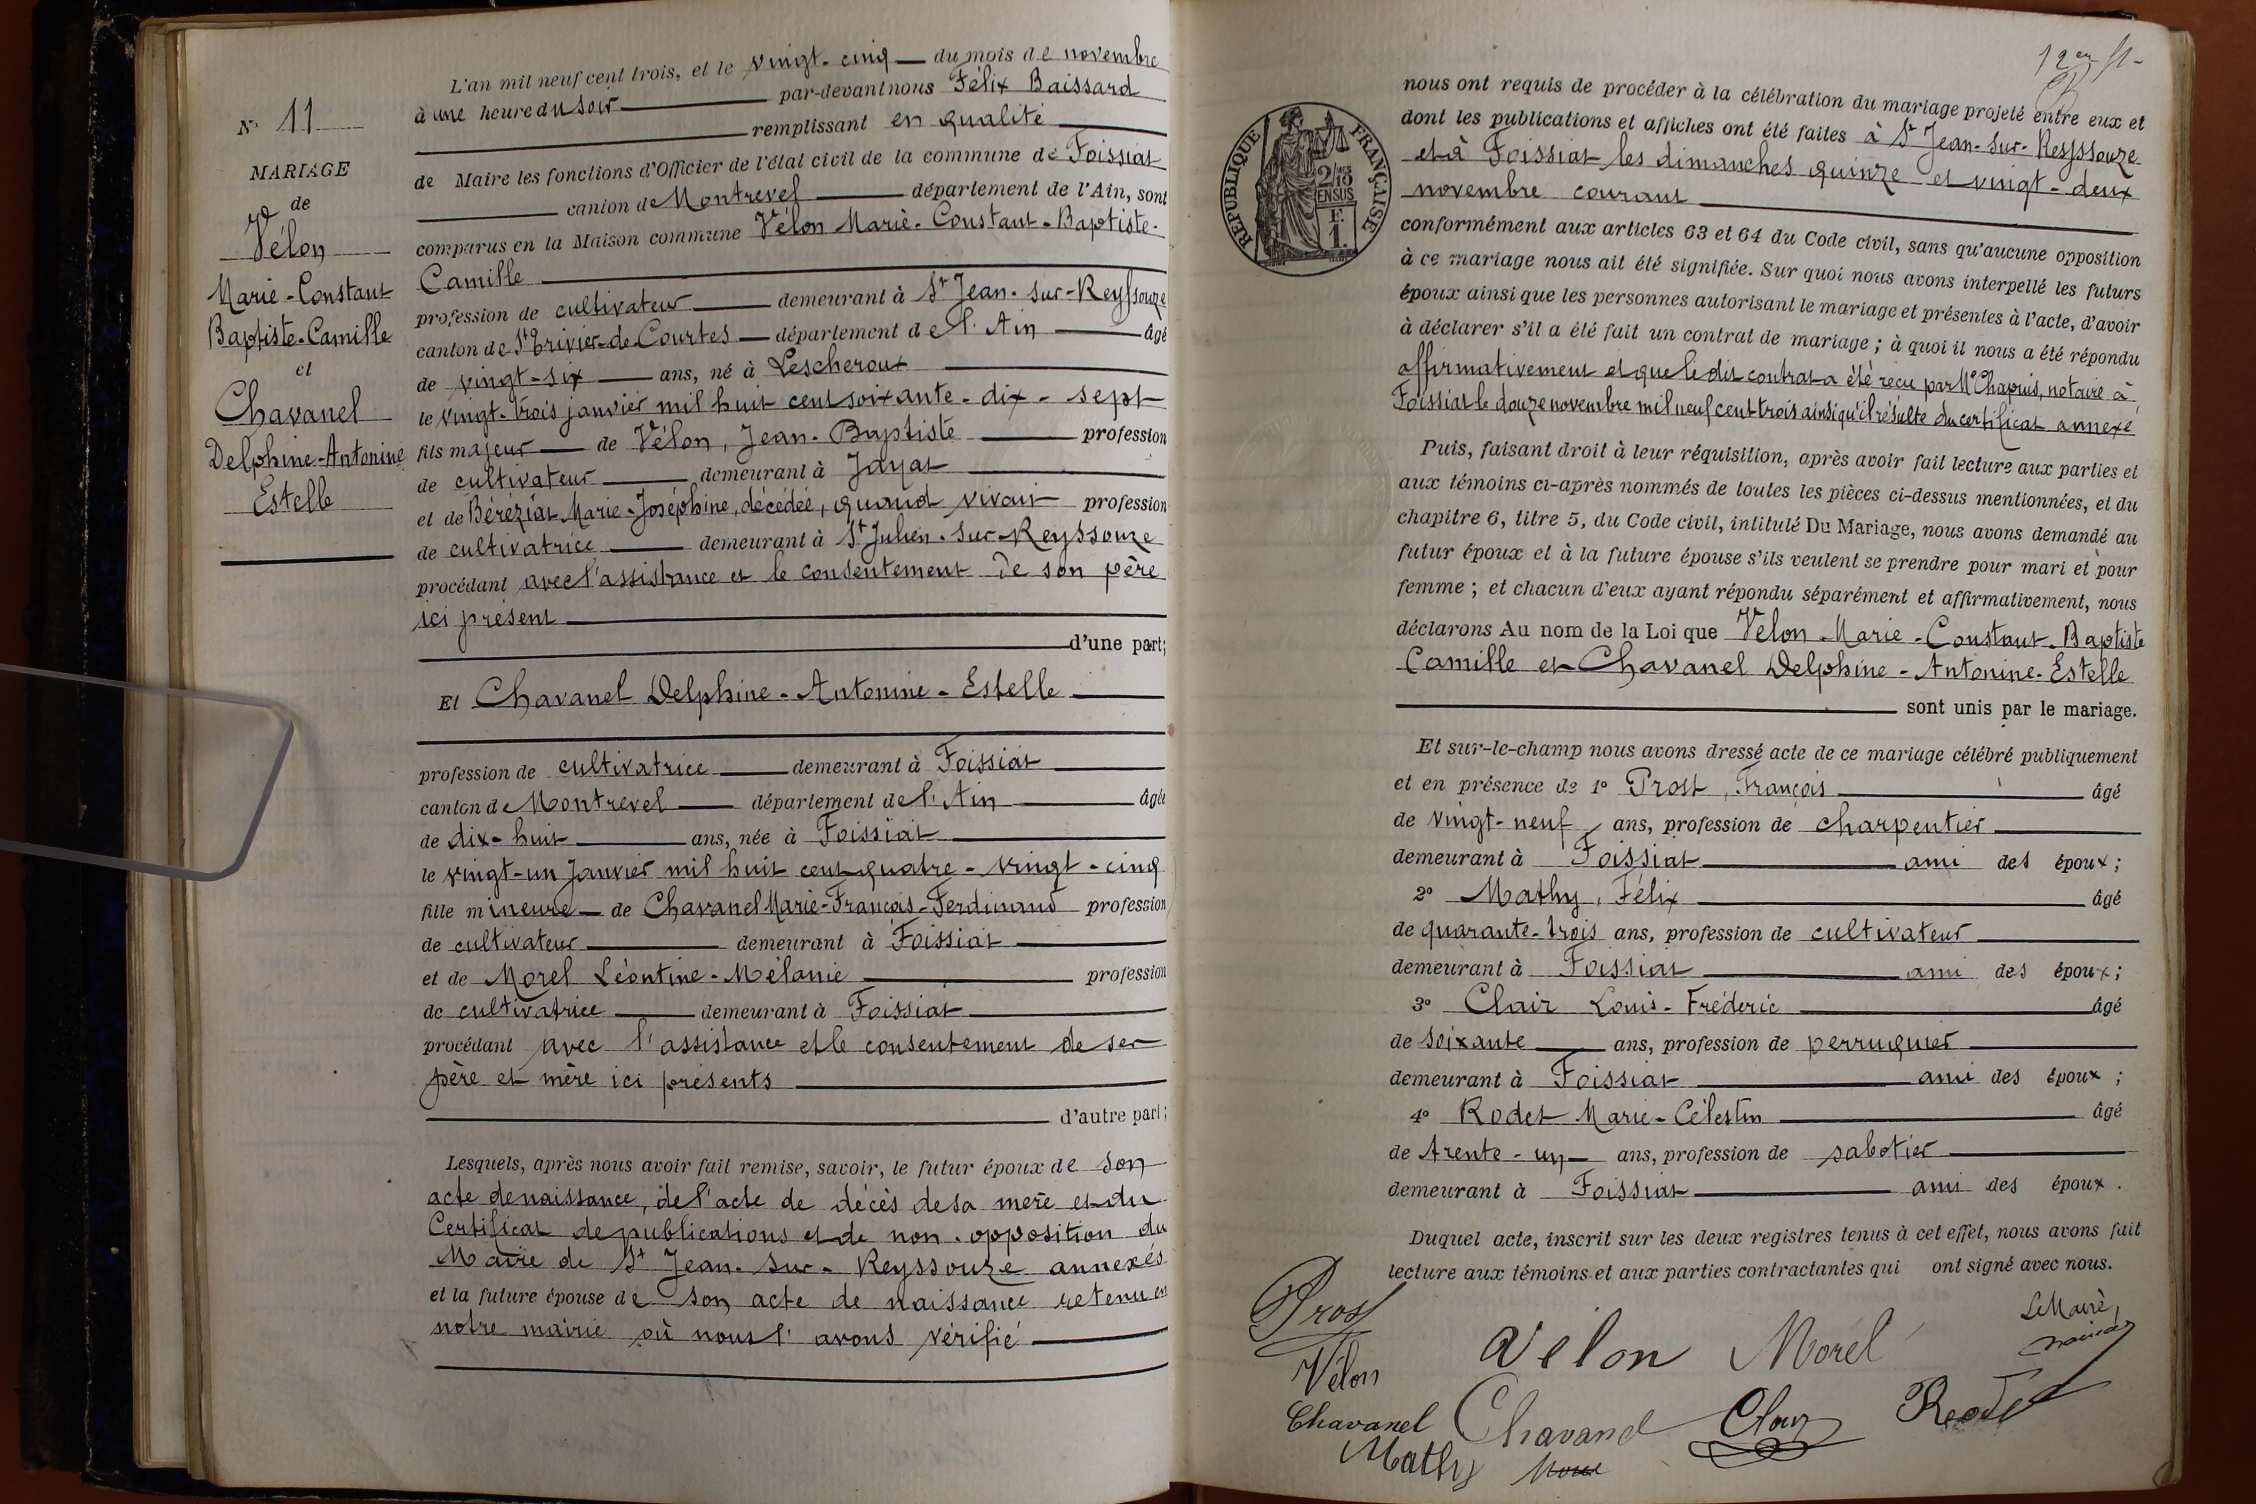 N° 11
MARIAGE
de
Vélon
Marie-Constant
Baptiste-Camille
et
Chavanel
Delphine-Antonine
Estelle
L'an mil neuf cent trois, et le vingt-cinq du mois de novembre
à une heure du soir par-devant nous Félix Baissard
remplissant en qualité
de Maire les fonctions d'Officier de l'état civil de la commune de Foissiat
canton de Montrevel département de l'Ain, sont
comparus en la Maison commune Vélon Marie-Constant-Baptiste-
Camille
profession de cultivateur demeurant à St Jean-sur-Reyssouze
canton de St Trivier-de-Courtes département de l'Ain âgé
de vingt-six ans, né à Lescheroux
le vingt-trois janvier mil huit cent soixante-dix-sept
fils majeur de Vélon, Jean-Baptiste profession
de cultivateur demeurant à Jayat
et de Béréziat Marie-Joséphine, décédée, quand vivait profession
de cultivatrice demeurant à St Julien-sur-Reyssouze
procédant avec l'assistance et le consentement de son père
ici présent
d'une part;
Et Chavanel Delphine-Antonine-Estelle
profession de cultivatrice demeurant à Foissiat
canton de Montrevel département de l'Ain âgée
de dix-huit ans, née à Foissiat
le vingt-un Janvier mil huit cent quatre-vingt-cinq
fille mineure de Chavanel Marie-François-Ferdinand profession
de cultivateur demeurant à Foissiat
et de Morel Léontine-Mélanie profession
de cultivatrice demeurant à Foissiat
procédant avec l'assistance et le consentement de ses
père et mère ici présents
d'autre part;
Lesquels, après nous avoir fait remise, savoir, le futur époux de son
acte de naissance, de l'acte de décès de sa mère et du
Certificat de publications et de non-opposition du
Maire de St Jean-sur-Reyssouze annexés
et la future épouse de son acte de naissance retenu en
notre mairie où nous l'avons vérifié
RÉPUBLIQUE FRANÇAISE
2/10 EN SUS
F. 1.
nous ont requis de procéder à la célébration du mariage projeté entre eux et
dont les publications et affiches ont été faites à St Jean-sur-Reyssouze
et à Foissiat les dimanches quinze et vingt-deux
novembre courant
conformément aux articles 63 et 64 du Code civil, sans qu'aucune opposition
à ce mariage nous ait été signifiée. Sur quoi nous avons interpellé les futurs
époux ainsi que les personnes autorisant le mariage et présentes à l'acte, d'avoir
à déclarer s'il a été fait un contrat de mariage; à quoi il nous a été répondu
affirmativement et que le dit contrat a été reçu par Me Chapuis, notaire à
Foissiat le douze novembre mil neuf cent trois ainsi qu'il résulte du certificat annexé
Puis, faisant droit à leur réquisition, après avoir fait lecture aux parties et
aux témoins ci-après nommés de toutes les pièces ci-dessus mentionnées, et du
chapitre 6, titre 5, du Code civil, intitulé Du Mariage, nous avons demandé au
futur époux et à la future épouse s'ils veulent se prendre pour mari et pour
femme; et chacun d'eux ayant répondu séparément et affirmativement, nous
déclarons Au nom de la Loi que Vélon Marie-Constant-Baptiste
Camille et Chavanel Delphine-Antonine-Estelle
sont unis par le mariage.
Et sur-le-champ nous avons dressé acte de ce mariage célébré publiquement
et en présence de 1° Prost, François âgé
de vingt-neuf ans, profession de charpentier
demeurant à Foissiat ami des époux;
2° Mathy, Félix âgé
de quarante-trois ans, profession de cultivateur
demeurant à Foissiat ami des époux;
3° Clair Louis-Fréderic âgé
de soixante ans, profession de perruquier
demeurant à Foissiat ami des époux;
4° Rodet Marie-Célestin âgé
de trente-un ans, profession de sabotier
demeurant à Foissiat ami des époux.
Duquel acte, inscrit sur les deux registres tenus à cet effet, nous avons fait
lecture aux témoins et aux parties contractantes qui ont signé avec nous.
Prost
Vélon Morel Le Maire,
Vélon
Chavanel Chavanel Clair Rodet
Mathy